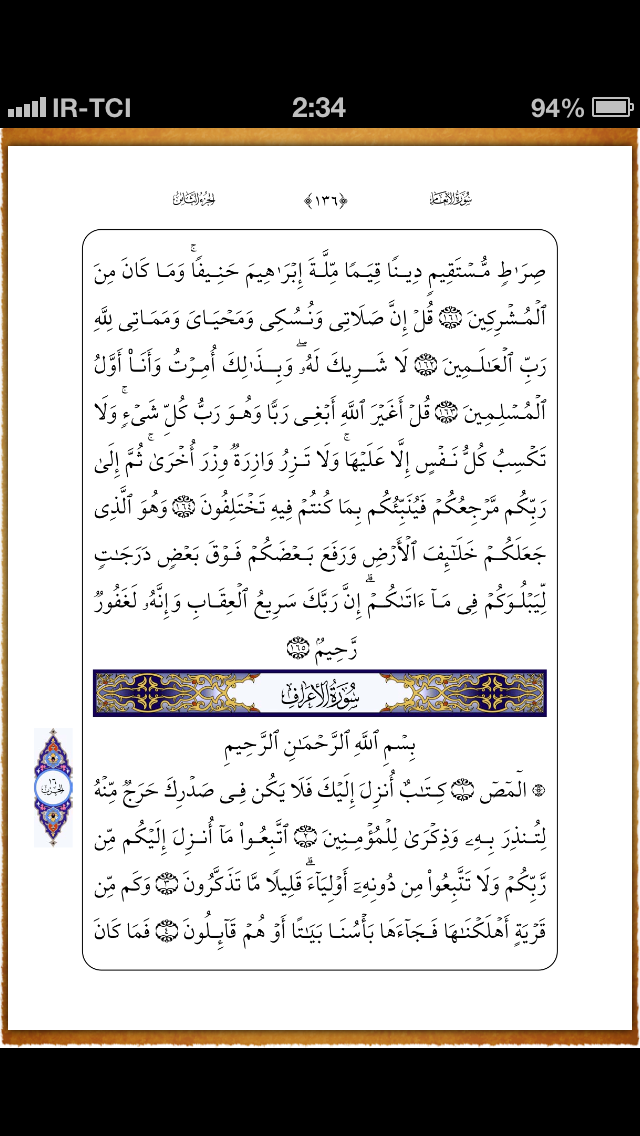 IR-TCI 2:34 94%
سُورَةُ الأَنْعَام ﴿١٣٦﴾ الجُزءُ الثَّامِنُ
صِرَٰطٍ مُّسۡتَقِيمٍ دِينًا قِيَمًا مِّلَّةَ إِبۡرَٰهِيمَ حَنِيفًاۚ وَمَا كَانَ مِنَ
ٱلۡمُشۡرِكِينَ ١٦١ قُلۡ إِنَّ صَلَاتِى وَنُسُكِى وَمَحۡيَاىَ وَمَمَاتِى لِلَّهِ
رَبِّ ٱلۡعَٰلَمِينَ ١٦٢ لَا شَرِيكَ لَهُۥۖ وَبِذَٰلِكَ أُمِرۡتُ وَأَنَا۠ أَوَّلُ
ٱلۡمُسۡلِمِينَ ١٦٣ قُلۡ أَغَيۡرَ ٱللَّهِ أَبۡغِى رَبًّا وَهُوَ رَبُّ كُلِّ شَىۡءٍۚ وَلَا
تَكۡسِبُ كُلُّ نَفۡسٍ إِلَّا عَلَيۡهَاۚ وَلَا تَزِرُ وَازِرَةٌ وِزۡرَ أُخۡرَىٰۚ ثُمَّ إِلَىٰ
رَبِّكُم مَّرۡجِعُكُمۡ فَيُنَبِّئُكُم بِمَا كُنتُمۡ فِيهِ تَخۡتَلِفُونَ ١٦٤ وَهُوَ ٱلَّذِى
جَعَلَكُمۡ خَلَٰٓئِفَ ٱلۡأَرۡضِ وَرَفَعَ بَعۡضَكُمۡ فَوۡقَ بَعۡضٍ دَرَجَٰتٍ
لِّيَبۡلُوَكُمۡ فِى مَآ ءَاتَىٰكُمۡۗ إِنَّ رَبَّكَ سَرِيعُ ٱلۡعِقَابِ وَإِنَّهُۥ لَغَفُورٌ
رَّحِيمٌۢ ١٦٥
سُورَةُ الأَعْرَافِ
بِسۡمِ ٱللَّهِ ٱلرَّحۡمَٰنِ ٱلرَّحِيمِ
الحِزْب ١٦
الٓمٓصٓ ١ كِتَٰبٌ أُنزِلَ إِلَيۡكَ فَلَا يَكُن فِى صَدۡرِكَ حَرَجٌ مِّنۡهُ
لِتُنذِرَ بِهِۦ وَذِكۡرَىٰ لِلۡمُؤۡمِنِينَ ٢ ٱتَّبِعُوا۟ مَآ أُنزِلَ إِلَيۡكُم مِّن
رَّبِّكُمۡ وَلَا تَتَّبِعُوا۟ مِن دُونِهِۦٓ أَوۡلِيَآءَۗ قَلِيلًا مَّا تَذَكَّرُونَ ٣ وَكَم مِّن
قَرۡيَةٍ أَهۡلَكۡنَٰهَا فَجَآءَهَا بَأۡسُنَا بَيَٰتًا أَوۡ هُمۡ قَآئِلُونَ ٤ فَمَا كَانَ